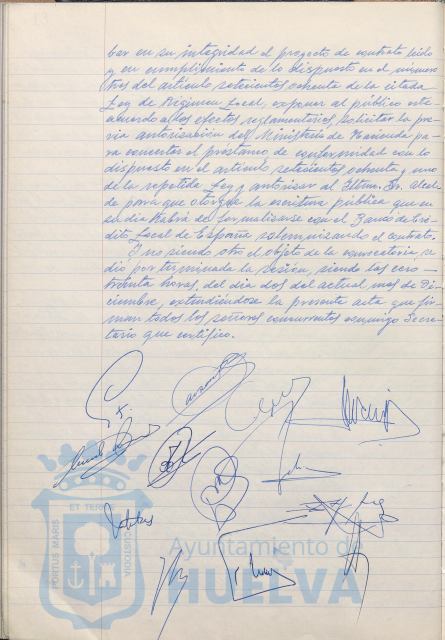 bar en su integridad el proyecto de contrato leido
y en cumplimiento de lo dispuesto en el número
tres del artículo setecientos ochenta de la citada
Ley de Régimen Local, exponer al público este
acuerdo a los efectos reglamentarios, solicitar la pre-
via autorización del Ministerio de Hacienda pa-
ra concertar el préstamo de conformidad con lo
dispuesto en el artículo setecientos ochenta y uno
de la repetida Ley y autorizar al Iltmo. Sr. Alcal-
de para que otorgue la escritura pública que en
su dia habrá de formalizarse con el Banco de Cré-
dito Local de España solemnizando el contrato.
Y no siendo otro el objeto de la convocatoria se
dio por terminada la sesión, siendo las cero-
treinta horas, del dia dos del actual mes de Di-
ciembre, extendiéndose la presente acta que fir-
man todos los señores concurrentes conmigo Secre-
tario que certifico.
PORTUS MARIS
ET TERRE
CUSTODIA
Ayuntamiento de
HUELVA